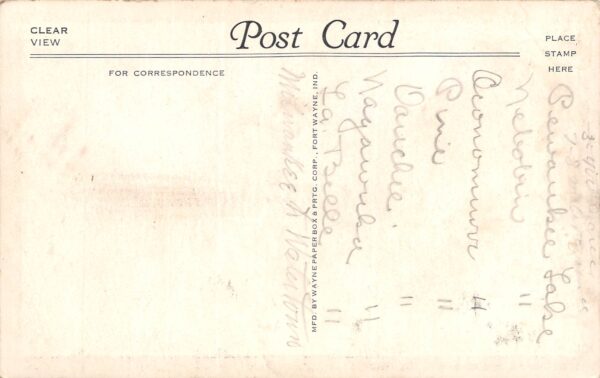 CLEAR
VIEW
Post Card
PLACE
STAMP
HERE
FOR CORRESPONDENCE
MFD. BY WAYNE PAPER BOX & PRTG. CORP., FORT WAYNE, IND.
Pewaukee Lake
Nehobin "
Oconomowoc "
Pine "
Oauchee "
Nagawicka "
La Belle "
Milwaukee & Watertown